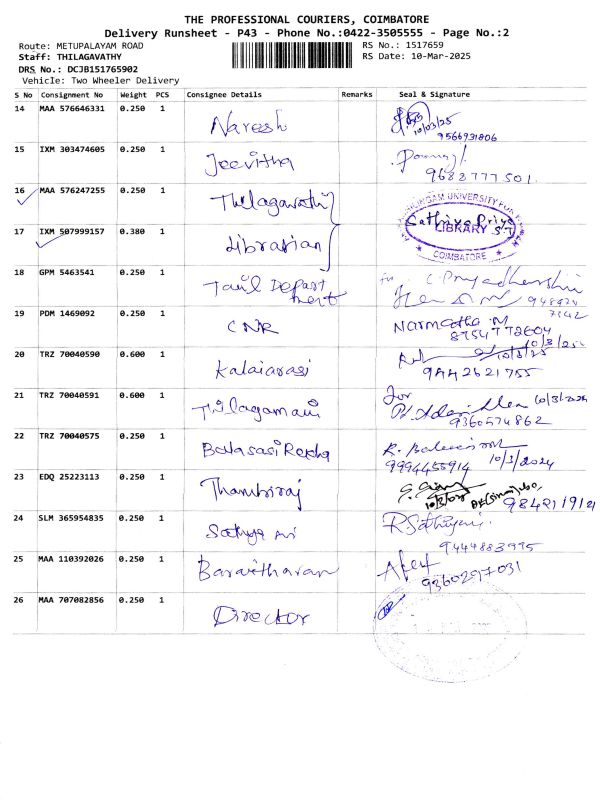 THE PROFESSIONAL COURIERS, COIMBATORE
Delivery Runsheet - P43 - Phone No.:0422-3505555 - Page No.:2
Route: METUPALAYAM ROAD RS No.: 1517659
Staff: THILAGAVATHY RS Date: 10-Mar-2025
DRS No.: DCJB151765902
Vehicle: Two Wheeler Delivery
S No Consignment No Weight PCS Consignee Details Remarks Seal & Signature
14 MAA 576646331 0.250 1 Naresh 10/03/25
9566931806
15 IXM 303474605 0.250 1 Jeevitha
9688777501.
16 MAA 576247255 0.250 1 Thilagavathi UNIVERSITY FOR
Sathiya Priya
17 IXM 507999157 0.380 1 Librarian LIBRARY
COIMBATORE
18 GPM 5463541 0.250 1 Tamil Depart
ment
19 PDM 1469092 0.250 1 CNR Narmatha M
8754772604
10/3/25
20 TRZ 70040590 0.600 1 Kalaiarasi 10/3/25
9442621755
21 TRZ 70040591 0.600 1 Thilagamani for 10/3/2024
9360574862
22 TRZ 70040575 0.250 1 BalasasiRekha
9994455914 10/3/2024
23 EDQ 25223113 0.250 1 Thambiraj
24 SLM 365954835 0.250 1 Sathya R.Sathiyavi
9444883995
25 MAA 110392026 0.250 1 Baravitharan
9360297031
26 MAA 707082856 0.250 1 Director